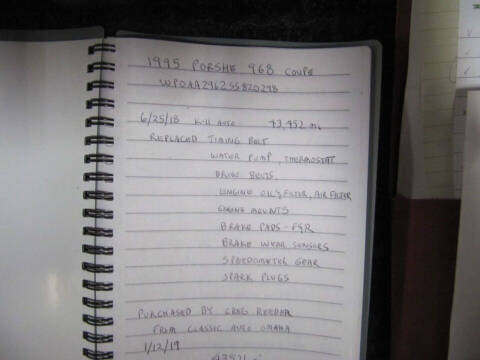 1995 PORSHE 968 COUPE
WPOAA2962SS820298
6/25/18 K-H AUTO 43,452 mi
REPLACED TIMING BELT
WATER PUMP, THERMOSTAT
DRIVE BELTS,
ENGINE OIL & FILTER, AIR FILTER
ENGINE MOUNTS
BRAKE PADS - F&R
BRAKE WEAR SENSORS
SPEEDOMETER GEAR
SPARK PLUGS
PURCHASED BY CRAIG
FROM CLASSIC AUTO OMAHA
1/12/19